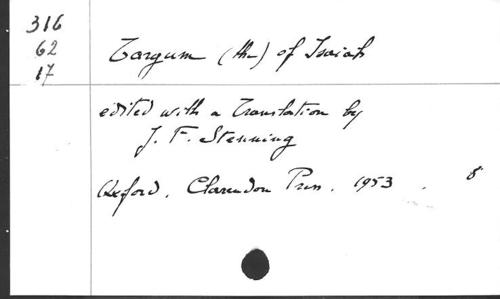 316
62
17
Targum (the) of Isaiah
edited with a Translation by
J. F. Stenning
Oxford. Clarendon Press. 1953. 8